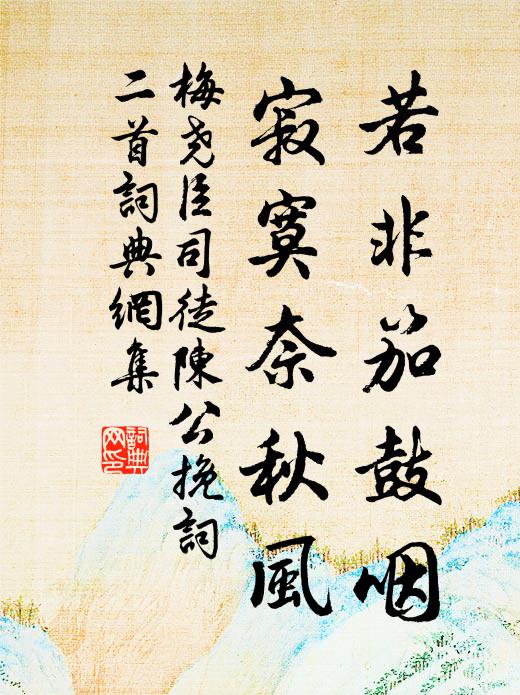 若非笳鼓咽
寂寞奈秋風
梅堯臣司徒陳公挽詞
二首詞典網集
詞典網印